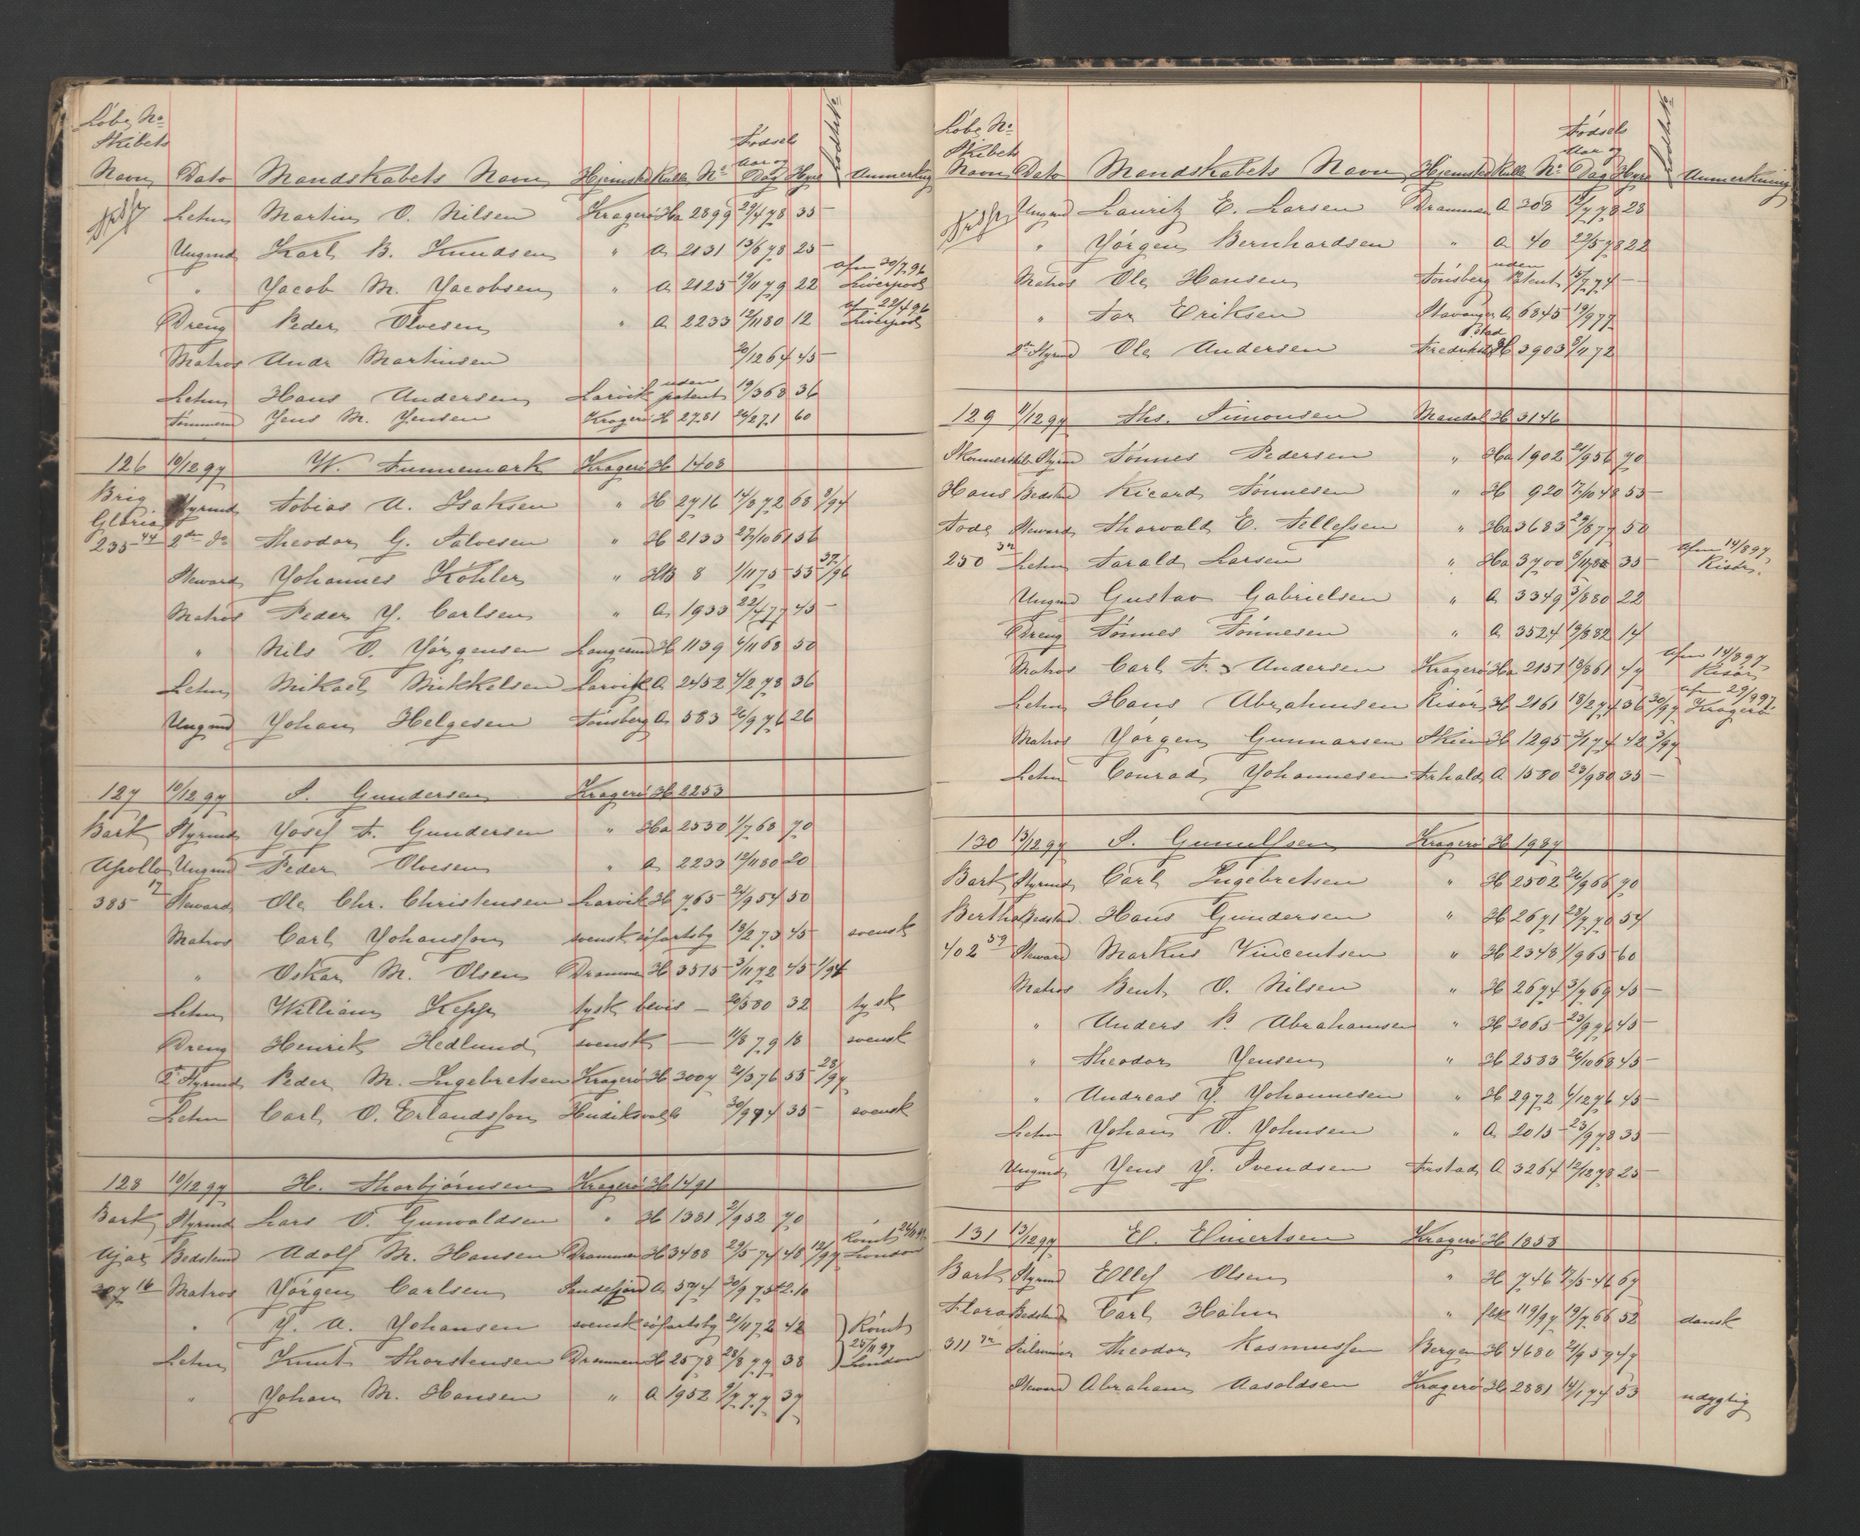 Löbe No
Skibets
Navn Dato Mandskabets Navn Hjemsted Rulle No Födsels Aar og Dag Hyre Anmerkning
Letm Martin O. Nilsen Kragerö Ha 2899 29/4 78 35
Ungmd Karl B. Knudsen " A 2131 13/6 78 25
" Jacob M. Jacobsen " A 2125 19/11 79 22 afm 30/7 96 Liverpool
Dreng Peder Olvesen " A 2233 12/11 80 12 afm 22/4 96 Liverpool
Matros Andr Martinsen 20/12 64 45
Letm Hans Andersen Larvik uden patent 19/3 68 36
Tömmerm Jens M. Jensen Kragerö H 2781 26/2 71 60
126 10/12 97 W. Funnemark Kragerö H 1408
Brig Styrmd Tobias A. Isaksen " H 2716 14/8 72 68 9/94
Gloria
235 44 2den do Theodor G. Salvesen " H 2133 27/10 61 56
Steward Johannes Köhler " HB 8 1/11 75 55 37/96
Matros Peder J. Carlsen " A 1933 22/4 77 45
" Nils O. Jörgensen Langesund H 1139 6/11 68 50
Letm Mikael Mikkelsen Larvik A 2452 4/2 78 36
Ungmd Johan Helgesen Tönsberg A 583 26/9 76 26
127 10/12 97 S. Gundersen Kragerö H 2253
Bark Styrmd Josef F. Gundersen " Ha 2530 1/7 68 70
Apollo Ungmd Peder Olvesen " A 2233 12/11 80 20
385 17 Steward Ole Chr. Christensen Larvik H 765 24/9 54 50
Matros Carl Johansson svensk söfartsby 13/2 73 45 svensk
" Oskar M. Olsen Drammen H 3515 3/11 72 45 1/94
Letm William Kepp tysk bevis — 20/5 80 32 tysk
Dreng Henrik Hedlund svensk — 11/8 79 18 svensk
2n Styrmd Peder M. Ingebretsen Kragerö H 3007 21/3 76 55 28/97
Letm Carl O. Erlandsson Hudiksvall 30/9 74 35 svensk
128 10/12 97 H. Thorbjörnsen Kragerö H 1491
Bark Styrmd Lars O. Gunvaldsen " H 1381 2/9 52 70
Ajax Bedstmd Adolf M. Hansen Drammen H 3488 22/5 74 48 12/97 Römt 24/11 97 London
307 16 Matros Jörgen Carlsen Sandefjord A 574 30/9 75 42.10
" J. A. Johansen svensk söfartsby 21/11 72 42 Römt
Letm Knut Thorstensen Drammen H 2578 28/8 77 38 25/11 97 London
" Johan M. Hansen " A 1952 9/7 77 37
Löbe No
Skibets
Navn Dato Mandskabets Navn Hjemsted Rulle No Födsels Aar og Dag Hyre Anmerkning
Ungmd Lauritz E. Larsen Drammen A 308 12/7 78 28
" Jörgen Bernhardsen " A 40 22/5 78 22
Matros Ole Hansen Tönsberg uden Patent 15/7 74 —
" Tor Eriksen Stavanger A 6845 19/9 77
2den Styrmd Ole Andersen Fredrikstad H 3903 8/11 72
129 11/12 97 Ths. Simonsen Mandal H 3146
Skonnerskib Styrmd Tönnes Pedersen " Ha 1902 21/9 56 70
Hans Bedstmd Ricard Tönnesen " H 920 7/10 48 55
Tode Steward Thorvald E. Tellefsen " Ha 3683 29/8 77 50
250 32 Letm Tarald Larsen " Ha 3700 5/11 78 35 afm 14/8 97 Risör.
Ungmd Gustav Gabrielsen " A 3349 3/8 80 22
Dreng Tönnes Tönnesen " A 3524 19/8 82 14
Matros Carl F. Andersen Kragerö Ha 2151 13/8 61 47 afm 14/8 97 Risör
Letm Hans Abrahamsen Risör H 2161 18/2 74 36 30/97 afm 29/9 97 Kragerö
Matros Jörgen Gunnarsen Skien H 1295 3/1 74 42 3/97
Letm Conrad Johannesen A 1580 23/9 80 35
130 13/12 97 S. Gunulfsen Kragerö H 1987
Bark Styrmd Carl Ingebretsen " H 2502 26/9 66 70
Bertha Bedstmd Hans Gundersen " H 2671 28/7 70 54
402 59 Steward Markus Vincentsen " H 2348 1/9 65 60
Matros Bent O. Nilsen " H 2674 3/7 69 45
" Anders B. Abrahamsen " H 3065 23/9 76 45
" Theodor Jensen " H 2583 26/10 68 45
" Andreas J. Johannesen " H 2972 6/12 76 45
Letm Johan O. Johnsen " A 2015 23/9 78 35
Ungmd Jens J. Svendsen A 3264 12/12 78 25
131 13/12 97 E. Einertsen Kragerö H 1858
Bark Styrmd Ellef Olsen " H 746 17/5 46 67
Flora Bedstmd Carl Hahn " 119/97 19/7 66 52 dansk
311 72 Seilmmer Theodor Rasmussen Bergen H 4680 21/9 59 47
Steward Abraham Aasoldsen Kragerö H 2881 14/1 74 53 udygtig